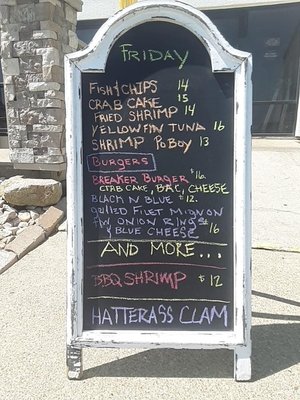 FRIDAY
FISH & CHIPS 14
CRAB CAKE 15
FRIED SHRIMP 14
YELLOWFIN TUNA 16
SHRIMP PO BOY 13
BURGERS
BREAKER BURGER $16
CRAB CAKE, BAC, CHEESE
BLACK N BLUE $12
grilled FILET MIGNON
ONION RINGS
& BLUE CHEESE $16
AND MORE...
BBQ SHRIMP $12
HATTERASS CLAM